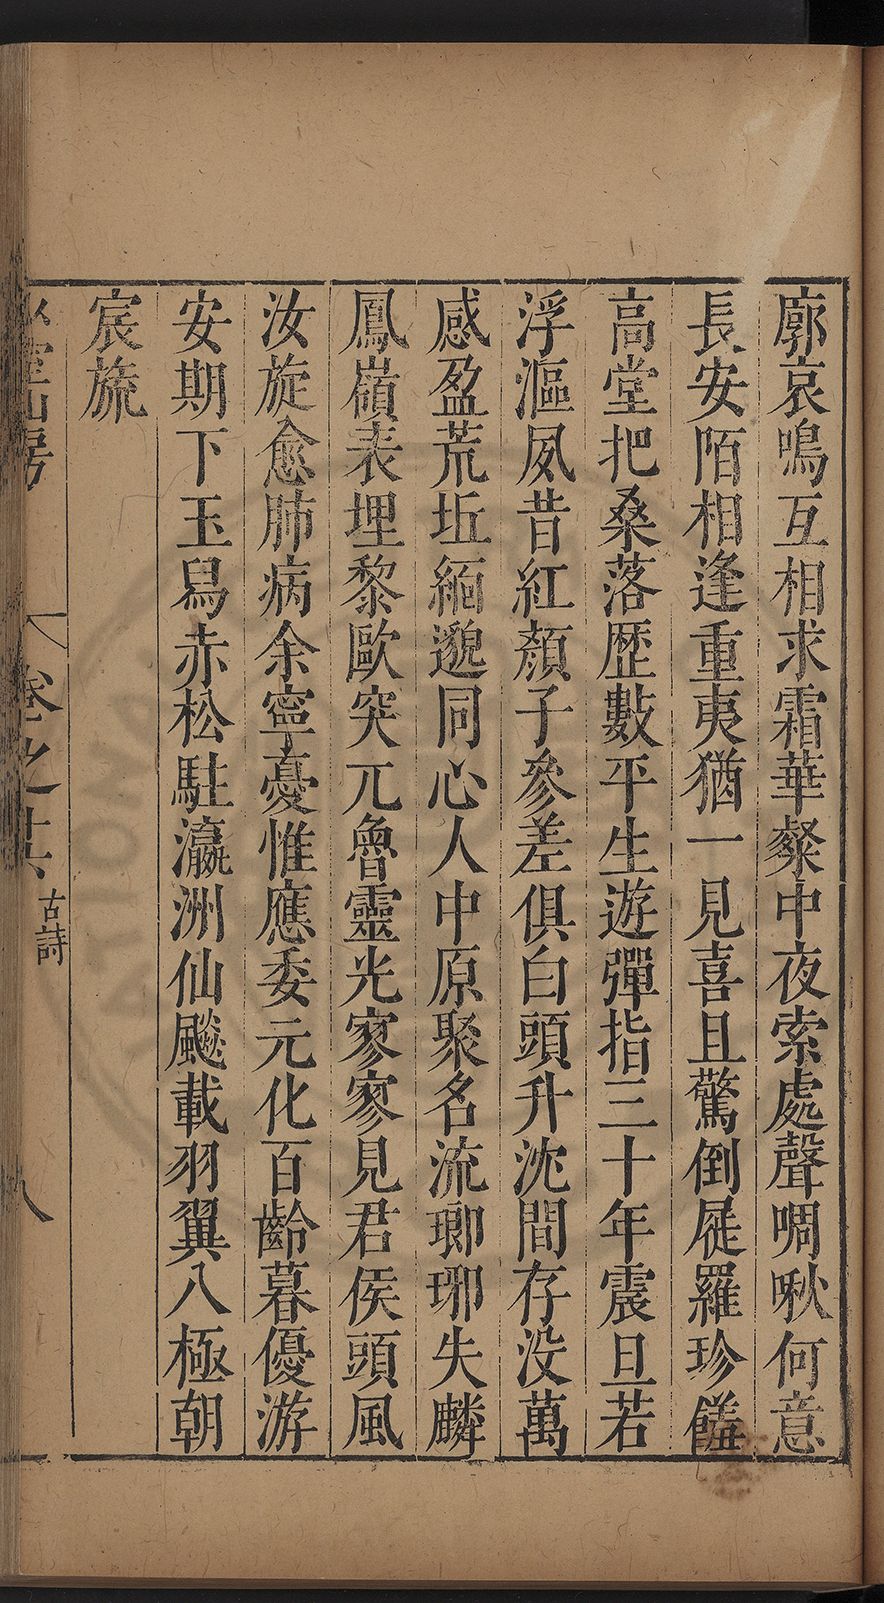 廓哀鳴互相求霜華粲中夜索處聲啁啾何意
長安陌相逢重夷猶一見喜且驚倒屣羅珍饈
高堂把桑落歷數平生遊彈指三十年震旦若
浮漚夙昔紅顏子參差俱白頭升沈間存没萬
感盈荒坵緬邈同心人中原聚名流瑯琊失麟
鳳嶺表埋黎歐突兀魯靈光寥寥見君侯頭風
汝旋愈肺病余寧憂惟應委元化百齡暮優游
安期下玉舄赤松駐瀛洲仙飈載羽翼八極朝
宸旒
山房
卷之十六
古詩
八